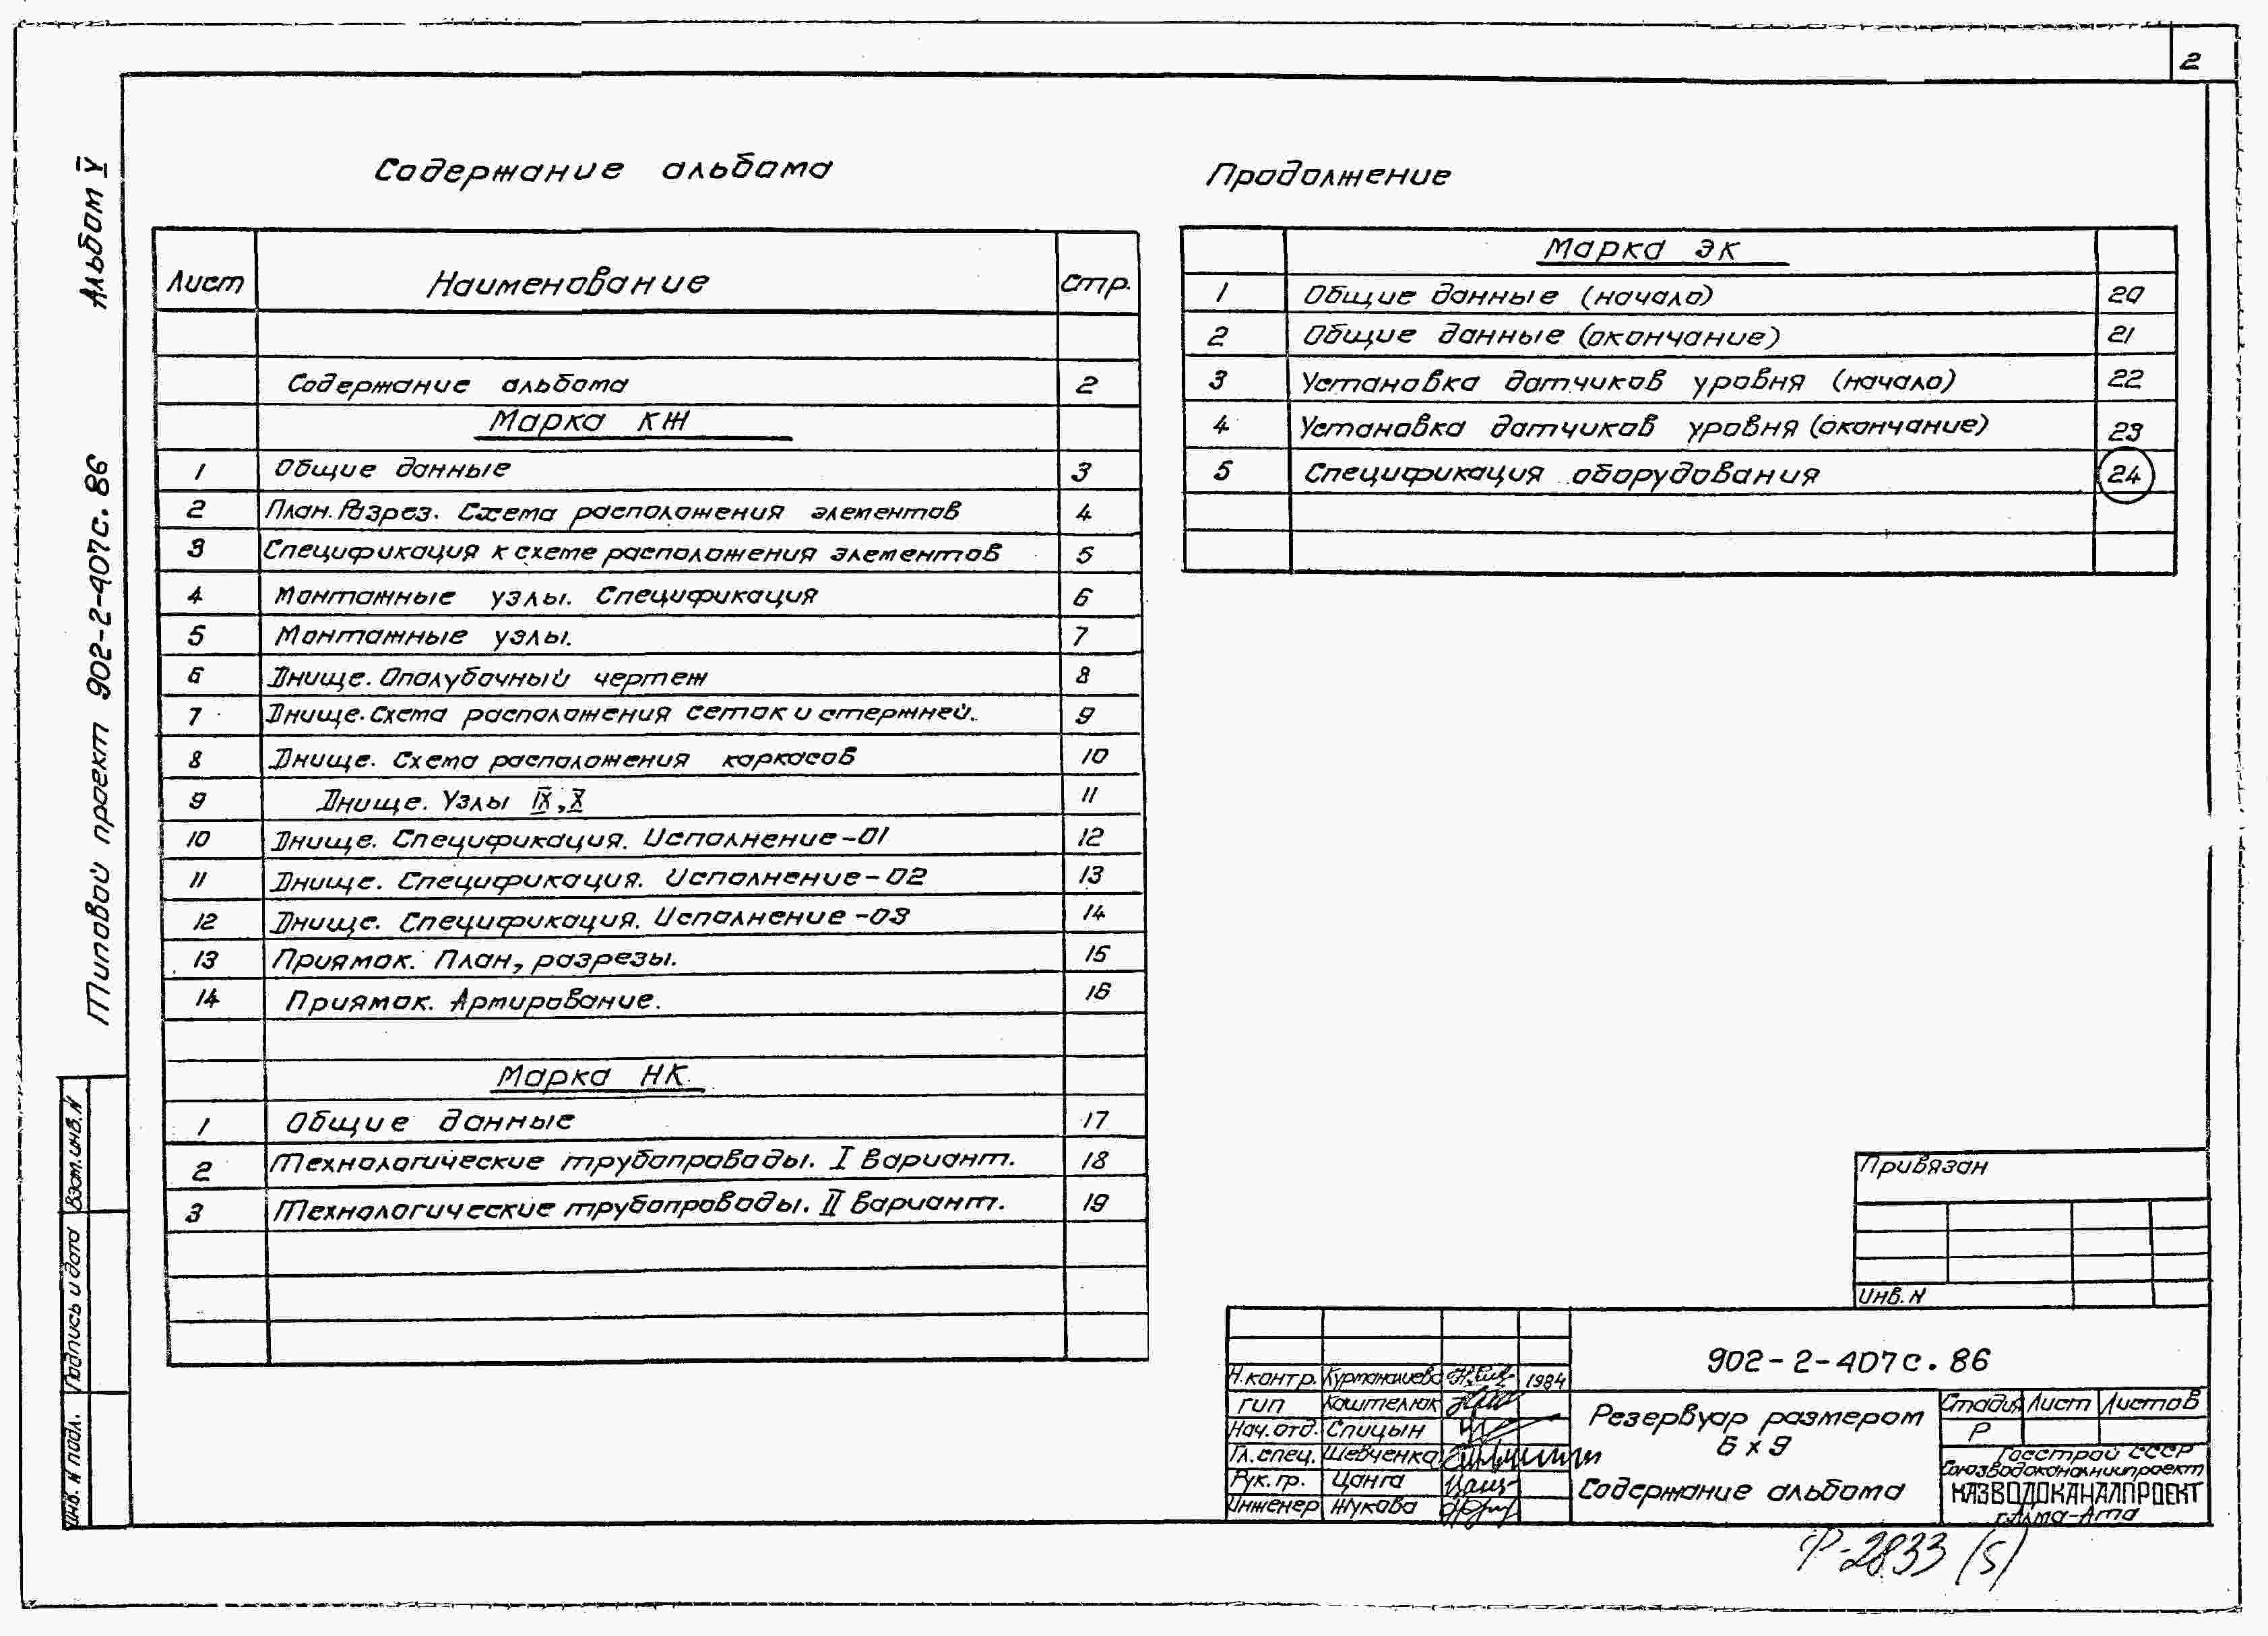 2
Альбом V
Типовой проект 902-2-407с.86
Содержание альбома
Лист Наименование Стр.
Содержание альбома 2
Марка КЖ
1 Общие данные 3
2 План. Разрез. Схема расположения элементов 4
3 Спецификация к схеме расположения элементов 5
4 Монтажные узлы. Спецификация 6
5 Монтажные узлы. 7
6 Днище. Опалубочный чертеж 8
7 Днище. Схема расположения сеток и стержней. 9
8 Днище. Схема расположения каркасов 10
9 Днище. Узлы IX, X 11
10 Днище. Спецификация. Исполнение-01 12
11 Днище. Спецификация. Исполнение-02 13
12 Днище. Спецификация. Исполнение-03 14
13 Приямок. План, разрезы. 15
14 Приямок. Армирование. 16
Марка НК
1 Общие данные 17
2 Технологические трубопроводы. I вариант. 18
3 Технологические трубопроводы. II вариант. 19
Продолжение
Марка ЭК
1 Общие данные (начало) 20
2 Общие данные (окончание) 21
3 Установка датчиков уровня (начало) 22
4 Установка датчиков уровня (окончание) 23
5 Спецификация оборудования 24
Взам.инв.N
Подпись и дата
Инв. N подл.
Привязан
Инв. N
902-2-407с.86
Н.контр. Курманалиева 1984
ГИП Коштелюк
Нач.отд. Спицын
Гл.спец. Шевченко
Рук.гр. Цанга
Инженер Жукова
Резервуар размером
6х9
Содержание альбома
Стадия Лист Листов
Р
Госстрой СССР
Союзводоканалниипроект
КАЗВОДОКАНАЛПРОЕКТ
г.Алма-Ата
Ф-2833 (5)